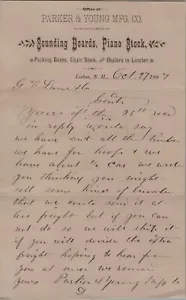 Office of
PARKER & YOUNG MFG. CO.
Sounding Boards, Piano Stock,
Packing Boxes, Chair Stock, and Dealers in Lumber
Lisbon, N. H., Oct 27 188
Gents
Yours of the 25th
in reply would say
we have all the
we have for hoops & we
have about ½ car
you thinking you might
sell some kind of lumber
that we could send it at
car freight but if you can
not do so we will ship it
if you will divide the extra
freight hoping to hear from
you at once we remain
Yours Parker & Young Mfg Co